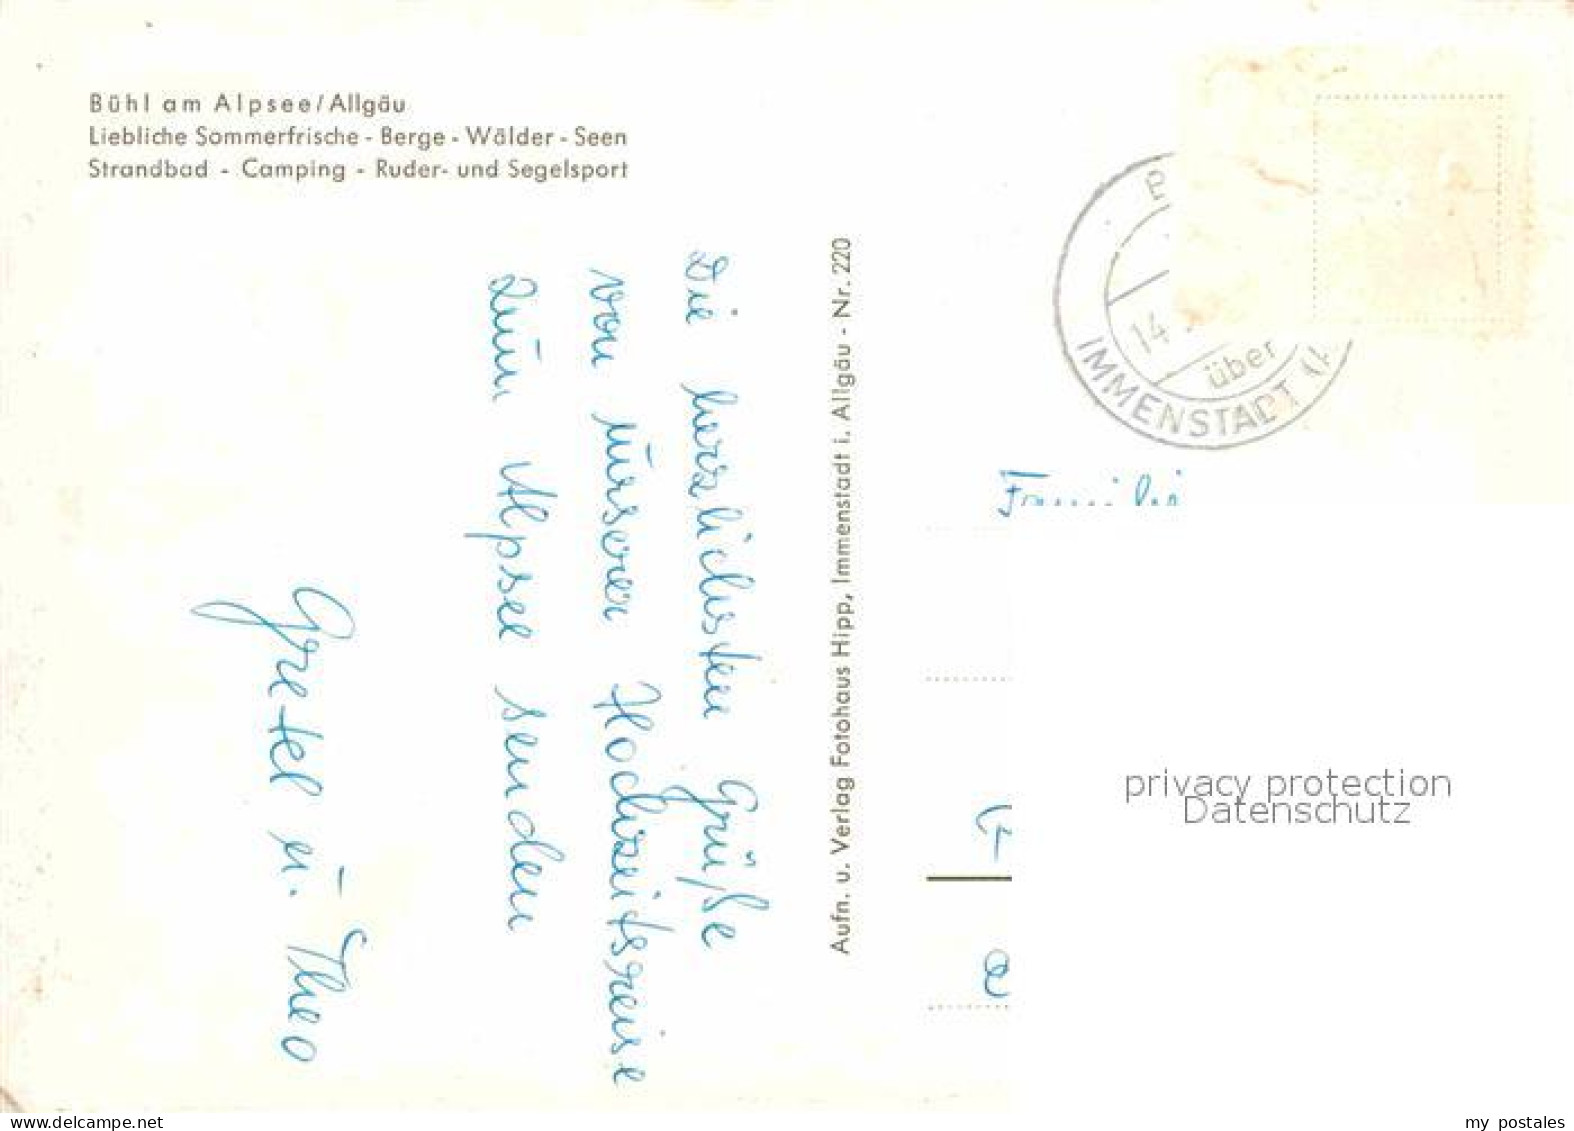 Bühl am Alpsee/Allgäu
Liebliche Sommerfrische - Berge - Wälder - Seen
Strandbad - Camping - Ruder- und Segelsport
Die herzlichsten Grüße
von unserer Hochzeitsreise
zum Alpsee senden
Gretel u. Theo
Aufn. u. Verlag Fotohaus Hipp, Immenstadt i. Allgäu - Nr. 220
14
über
IMMENSTADT
Familie
privacy protection
Datenschutz
www.delcampe.net
my_postales